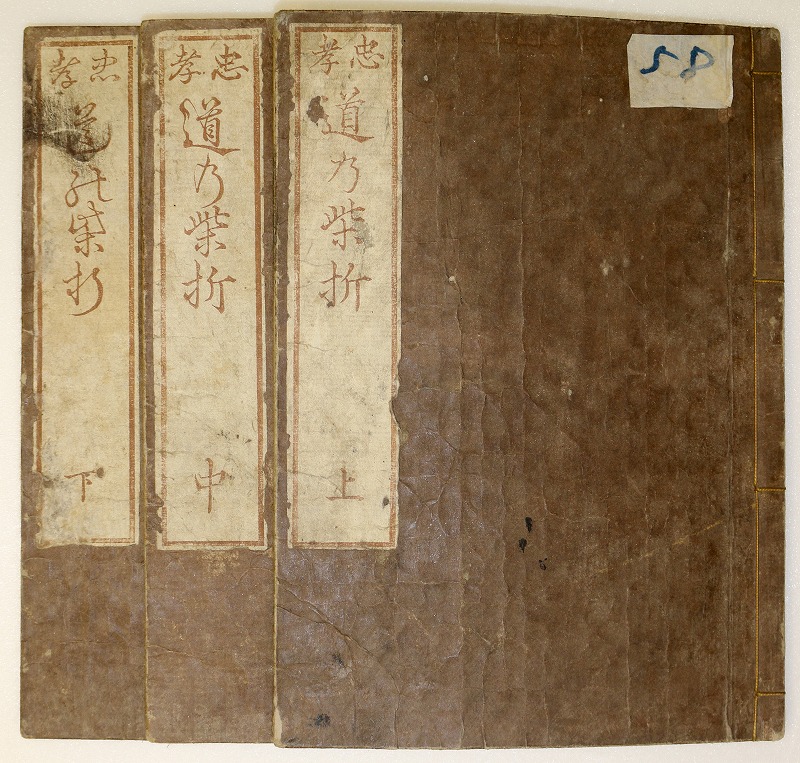 58
忠孝
道乃柴折
上
忠孝
道乃柴折
中
忠孝
道能柴折
下